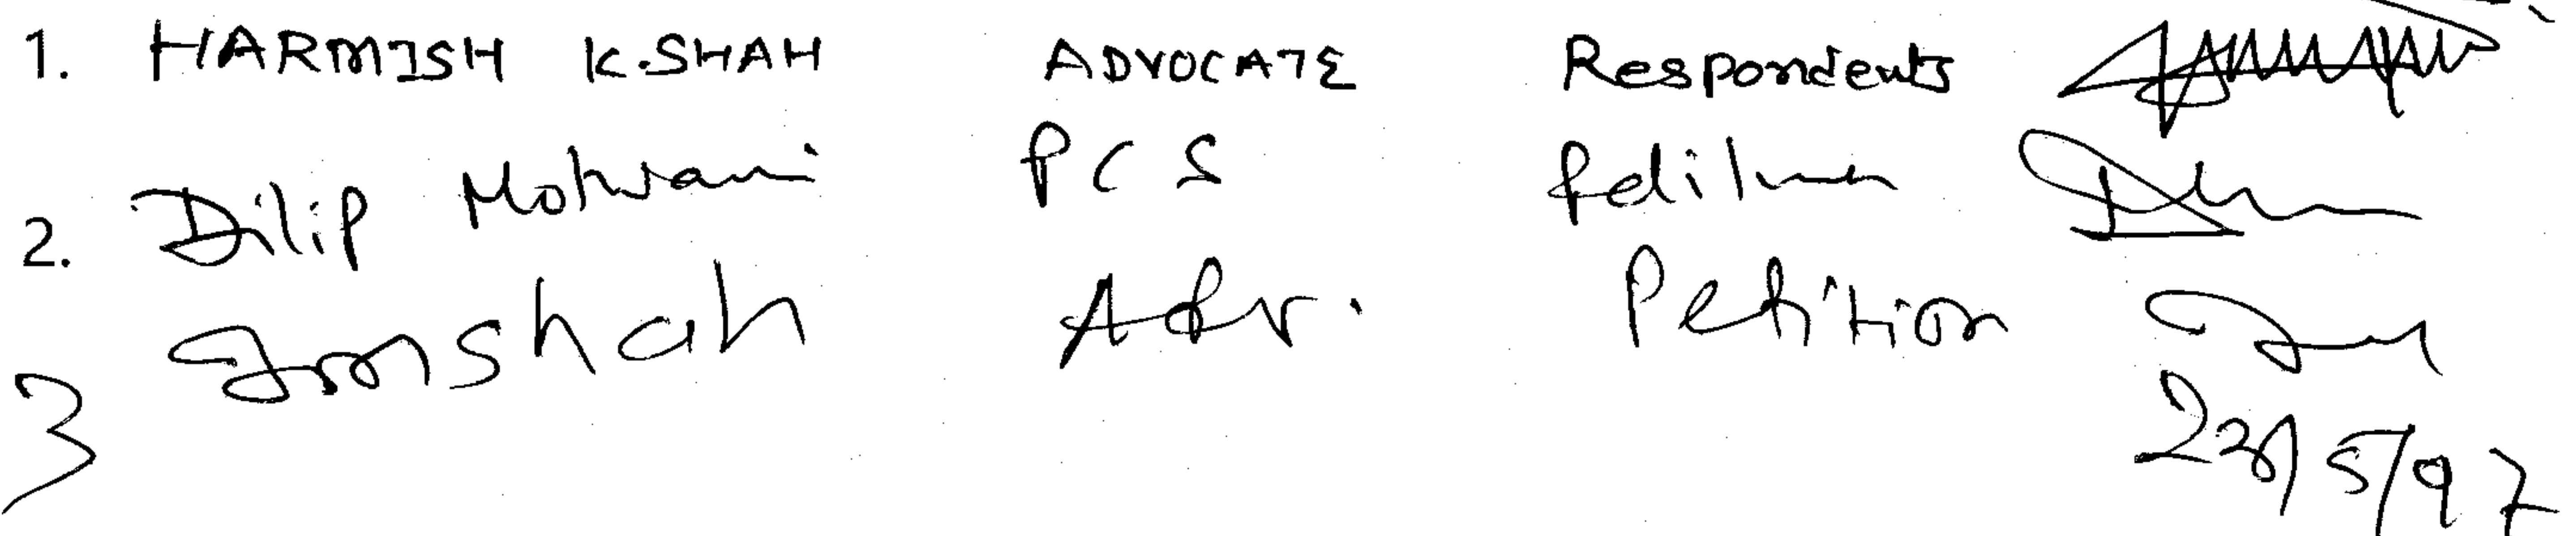 1. HARMISH K.SHAH ADVOCATE Respondents
2. Dilip Motwani PCS Petitioner
3 Jmshah Adv. Petition